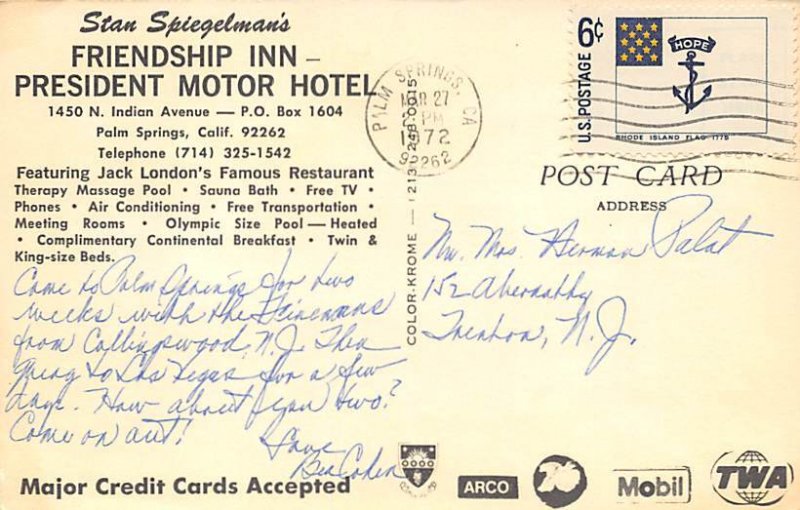 Stan Spiegelman's
FRIENDSHIP INN –
PRESIDENT MOTOR HOTEL
1450 N. Indian Avenue — P.O. Box 1604
Palm Springs, Calif. 92262
Telephone (714) 325-1542
Featuring Jack London's Famous Restaurant
Therapy Massage Pool • Sauna Bath • Free TV •
Phones • Air Conditioning • Free Transportation •
Meeting Rooms • Olympic Size Pool — Heated
• Complimentary Continental Breakfast • Twin &
King-size Beds.
Come to Palm Springs for two
weeks with the
from Collingswood, N.J. Then
going to Las Vegas for a few
days. How about you two?
Come on out!
Love
Bea Cohen
Major Credit Cards Accepted
COLOR-KROME — 1213
PALM SPRINGS, CA
MAR 27
PM
1972
92262
6¢
U.S. POSTAGE
HOPE
RHODE ISLAND FLAG 1775
POST CARD
ADDRESS
Mr. Mrs. Herman Palat
152 Abernathy
Trenton, N.J.
ARCO
76
Mobil
TWA